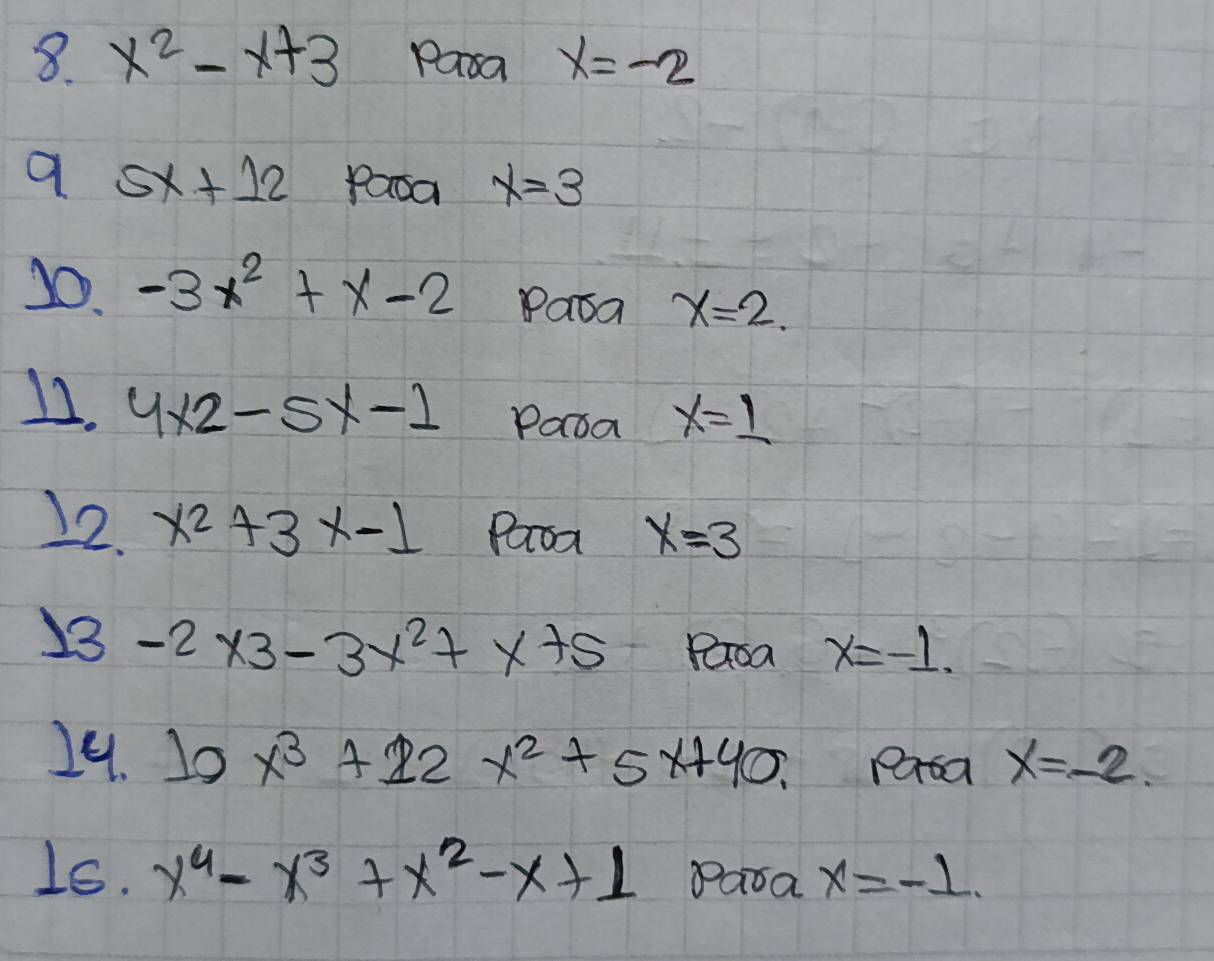 8. x² - x+3 para x=-2
9 5x+12 para x=3
10. -3x² + x-2 para x=2.
11. 4x2-5x-1 para x=1
12. x²+3x-1 para x=3
13 -2x3-3x²+ x+5 para x=-1.
14. 10x³ +12x²+5x+40. para x=-2.
15. x⁴- x³ +x²-x+1 para x=-1.